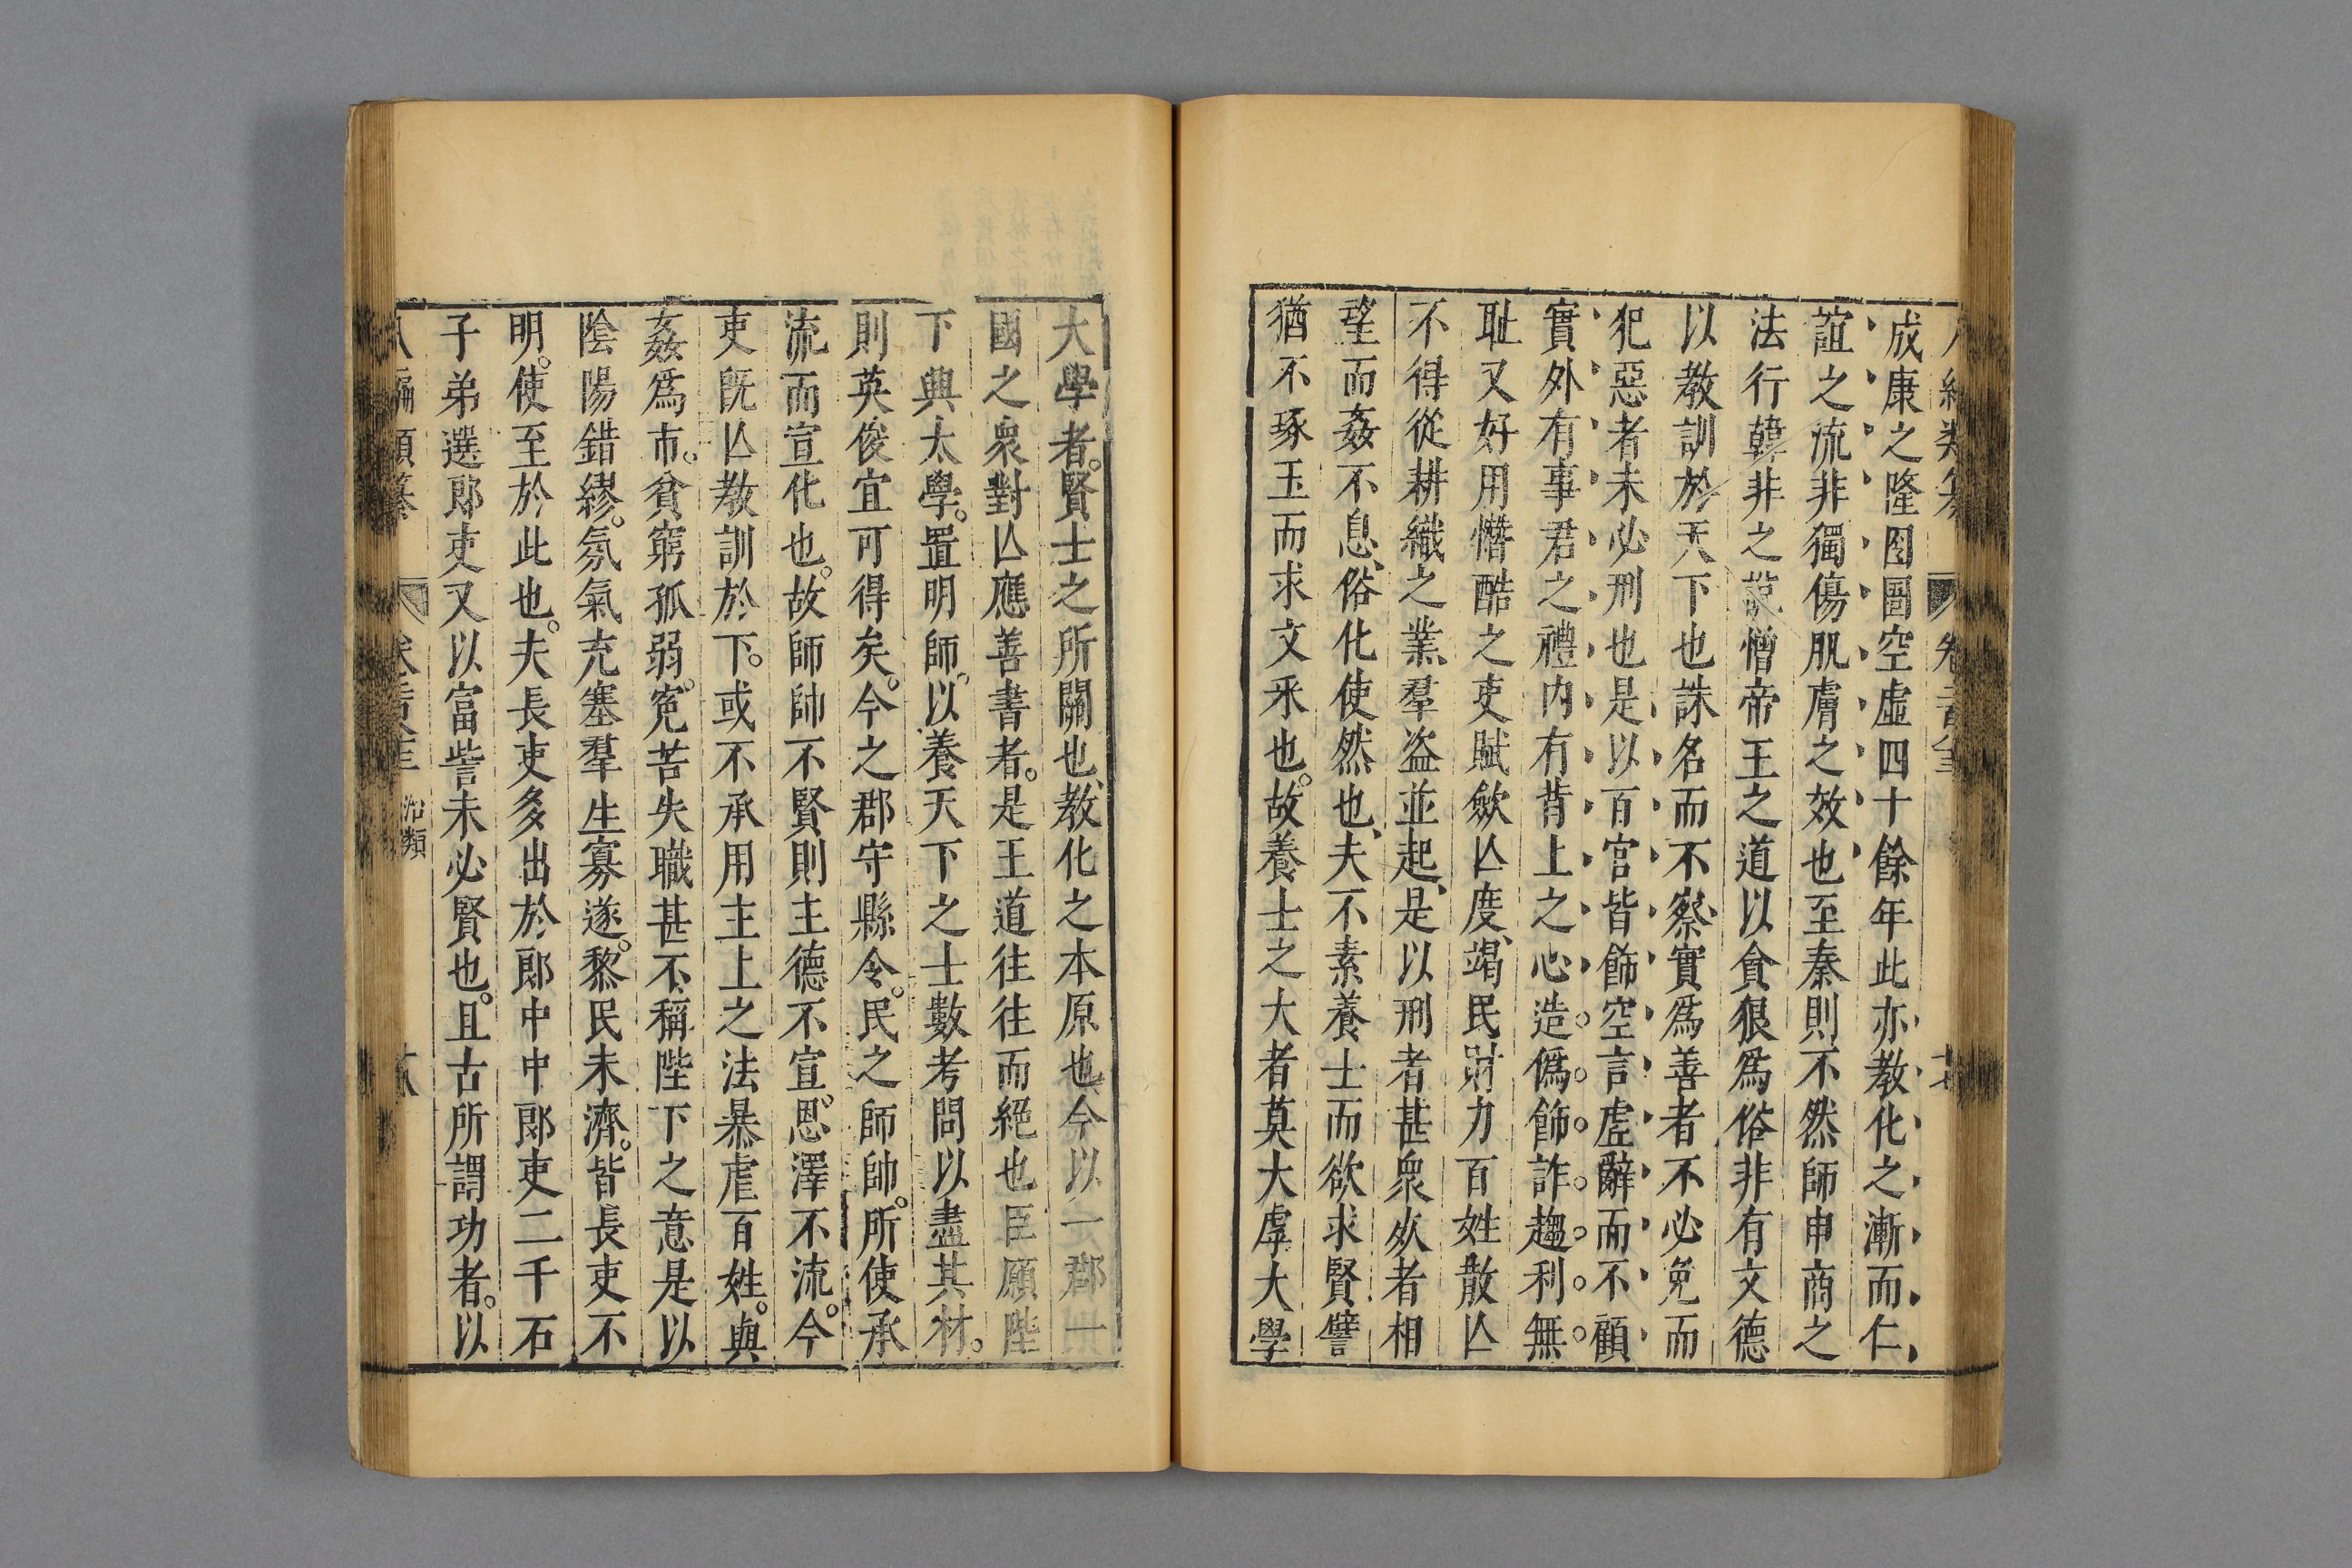 成康之隆囹圄空虛四十餘年此亦教化之漸而仁
誼之流非獨傷肌膚之效也至秦則不然師申商之
法行韓非之說憎帝王之道以貪狠爲俗非有文德
以教訓於天下也誅名而不察實爲善者不必免而
犯惡者未必刑也是以百官皆飾空言虛辭而不顧
實外有事君之禮内有背上之心造僞飾詐趨利無
耻又好用憯酷之吏賦歛亾度竭民財力百姓散亾
不得從耕織之業羣盗並起是以刑者甚衆𣦸者相
望而姦不息俗化使然也夫不素養士而欲求賢譬
猶不琢玉而求文釆也故養士之大者莫大虖大學
大學者賢士之所關也教化之本原也今以一郡一
國之衆對亾應善書者是王道往往而絕也臣願陛
下興太學置明師以養天下之士數考問以盡其材
則英俊宜可得矣今之郡守縣令民之師帥所使承
流而宣化也故師帥不賢則主德不宣恩澤不流今
吏旣亾教訓於下或不承用主上之法暴虐百姓與
姦爲市貧窮孤弱寃苦失職甚不稱陛下之意是以
陰陽錯繆氛氣充塞羣生寡遂黎民未濟皆長吏不
明使至於此也夫長吏多出於郎中中郎吏二千石
子弟選郎吏又以富訾未必賢也且古所謂功者以
治類